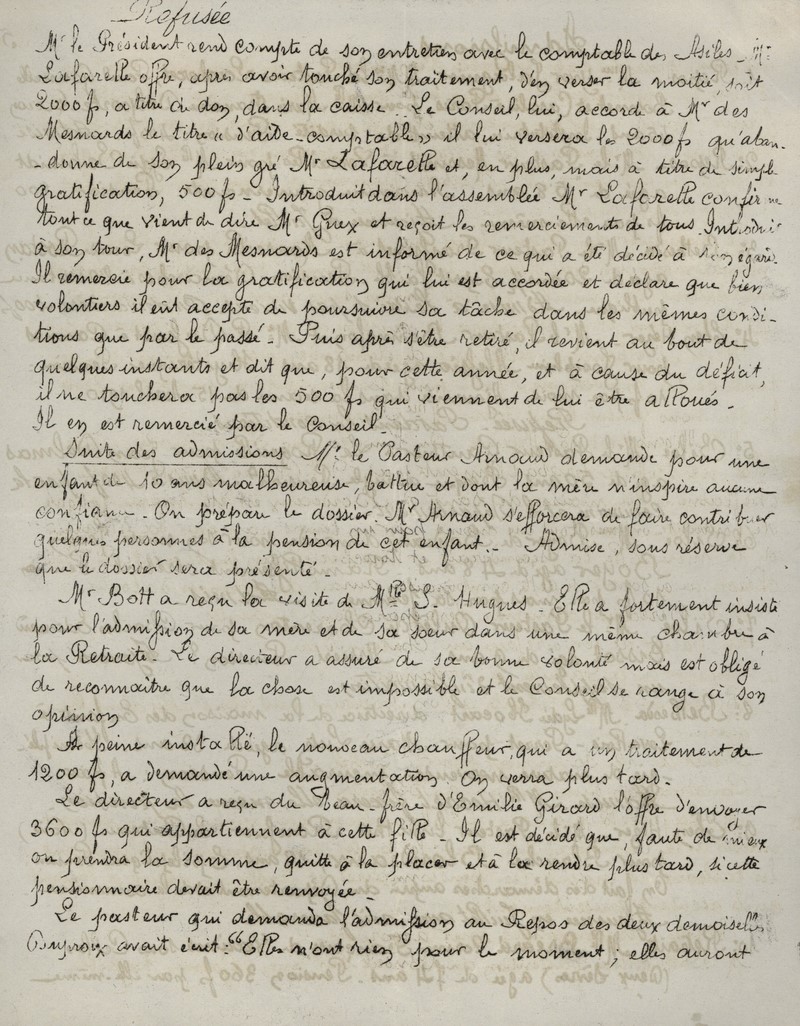 Refusée
Mr le Président rend compte de son entretien avec le comptable des Asiles - Mr
Lafarelle offre, après avoir touché son traitement, d'en verser la moitié, soit
2000 fs, a titre de don, dans la caisse. Le Conseil, lui, accorde à Mr des
Mesnards le titre « d'aide-comptable » il lui versera les 2000 fs qu'aban-
-donne de son plein gré Mr Lafarelle et, en plus, mais à titre de simple
gratification, 500 fs - Introduit dans l'assemblée Mr Lafarelle confirme
tout ce que vient de dire Mr Guex et reçoit les remerciements de tous. Introduit
à son tour, Mr des Mesnards est informé de ce qui a été décidé à son égard.
Il remercie pour la gratification qui lui est accordée et déclare que bien
volontiers il eût accepté de poursuivre sa tâche dans les mêmes condi-
tions que par le passé - Puis après s'être retiré, il revient au bout de
quelques instants et dit que, pour cette année, et à cause du déficit,
il ne touchera pas les 500 fs qui viennent de lui être alloués -
Il en est remercié par le Conseil -
Suite des admissions Mr le Pasteur Arnaud demande pour une
enfant de 10 ans malheureuse, battue et dont la mère n'inspire aucune
confiance - On prépare le dossier. Mr Arnaud s'efforcera de faire contribuer
quelques personnes à la pension de cet enfant. - Admise, sous réserve
que le dossier sera présenté -
Mr Bott a reçu la visite de Mlle S. Hugues - Elle a fortement insisté
pour l'admission de sa mère et de sa soeur dans une même chambre à
la Retraite - Le directeur a assuré de sa bonne volonté mais est obligé
de reconnaître que la chose est impossible et le Conseil se range à son
opinion
A peine installé, le nouveau chauffeur, qui a un traitement de
1200 fs, a demandé une augmentation. On verra plus tard -
Le directeur a reçu du beau-frère d'Emilie Girard l'offre d'envoyer
3600 fs qui appartiennent à cette fille - Il est décidé que, faute de mieux
on prendra la somme, quitte à la placer et à la rendre plus tard, si cette
pensionnaire devait être renvoyée -
Le pasteur qui demanda l'admission au Repos des deux demoiselles
avait écrit : "Elles n'ont rien pour le moment ; elles auront